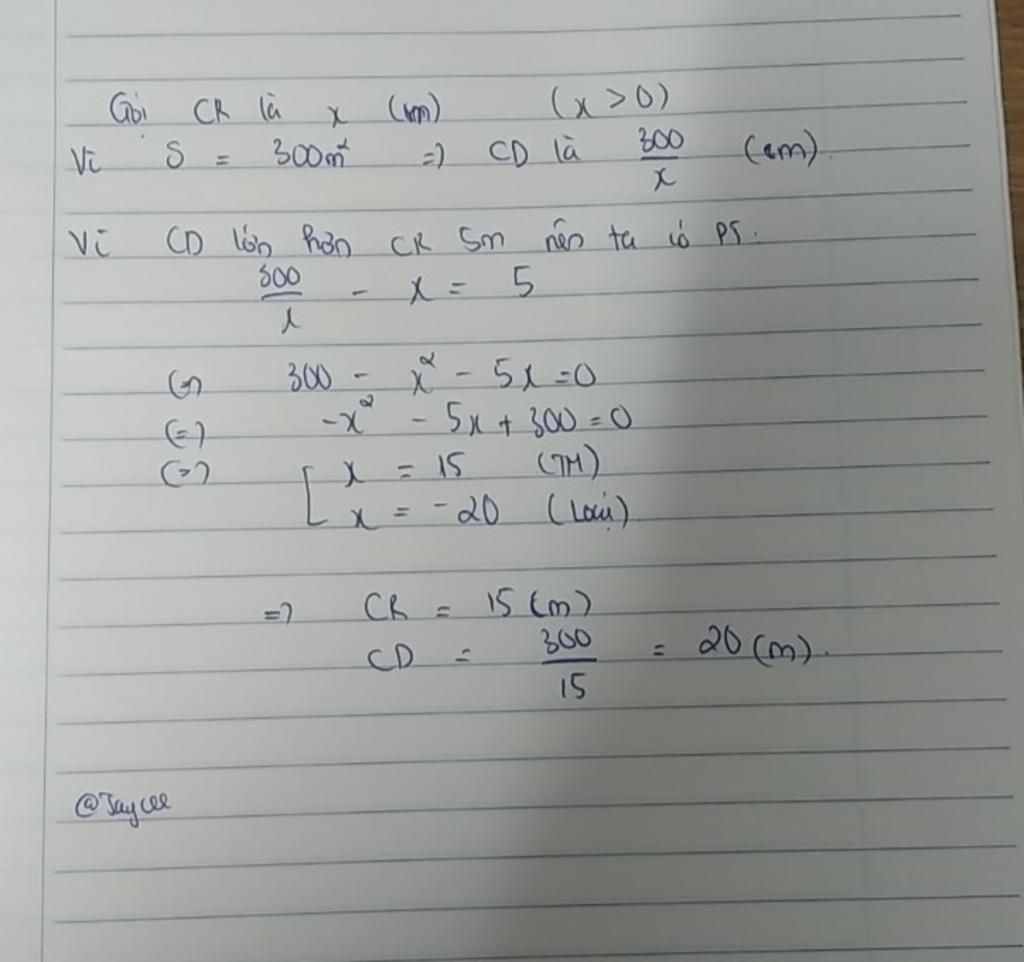 Gọi CR là x (m) (x > 0)
Vì S = 300m² => CD là 300/x (m).
Vì CD lớn hơn CR 5m nên ta có PT:
300/x - x = 5
(=) 300 - x² - 5x = 0
(=) -x² - 5x + 300 = 0
(=) [ x = 15 (TM)
x = -20 (Loại)
=> CR = 15 (m)
CD = 300/15 = 20 (m).
@Jaycee